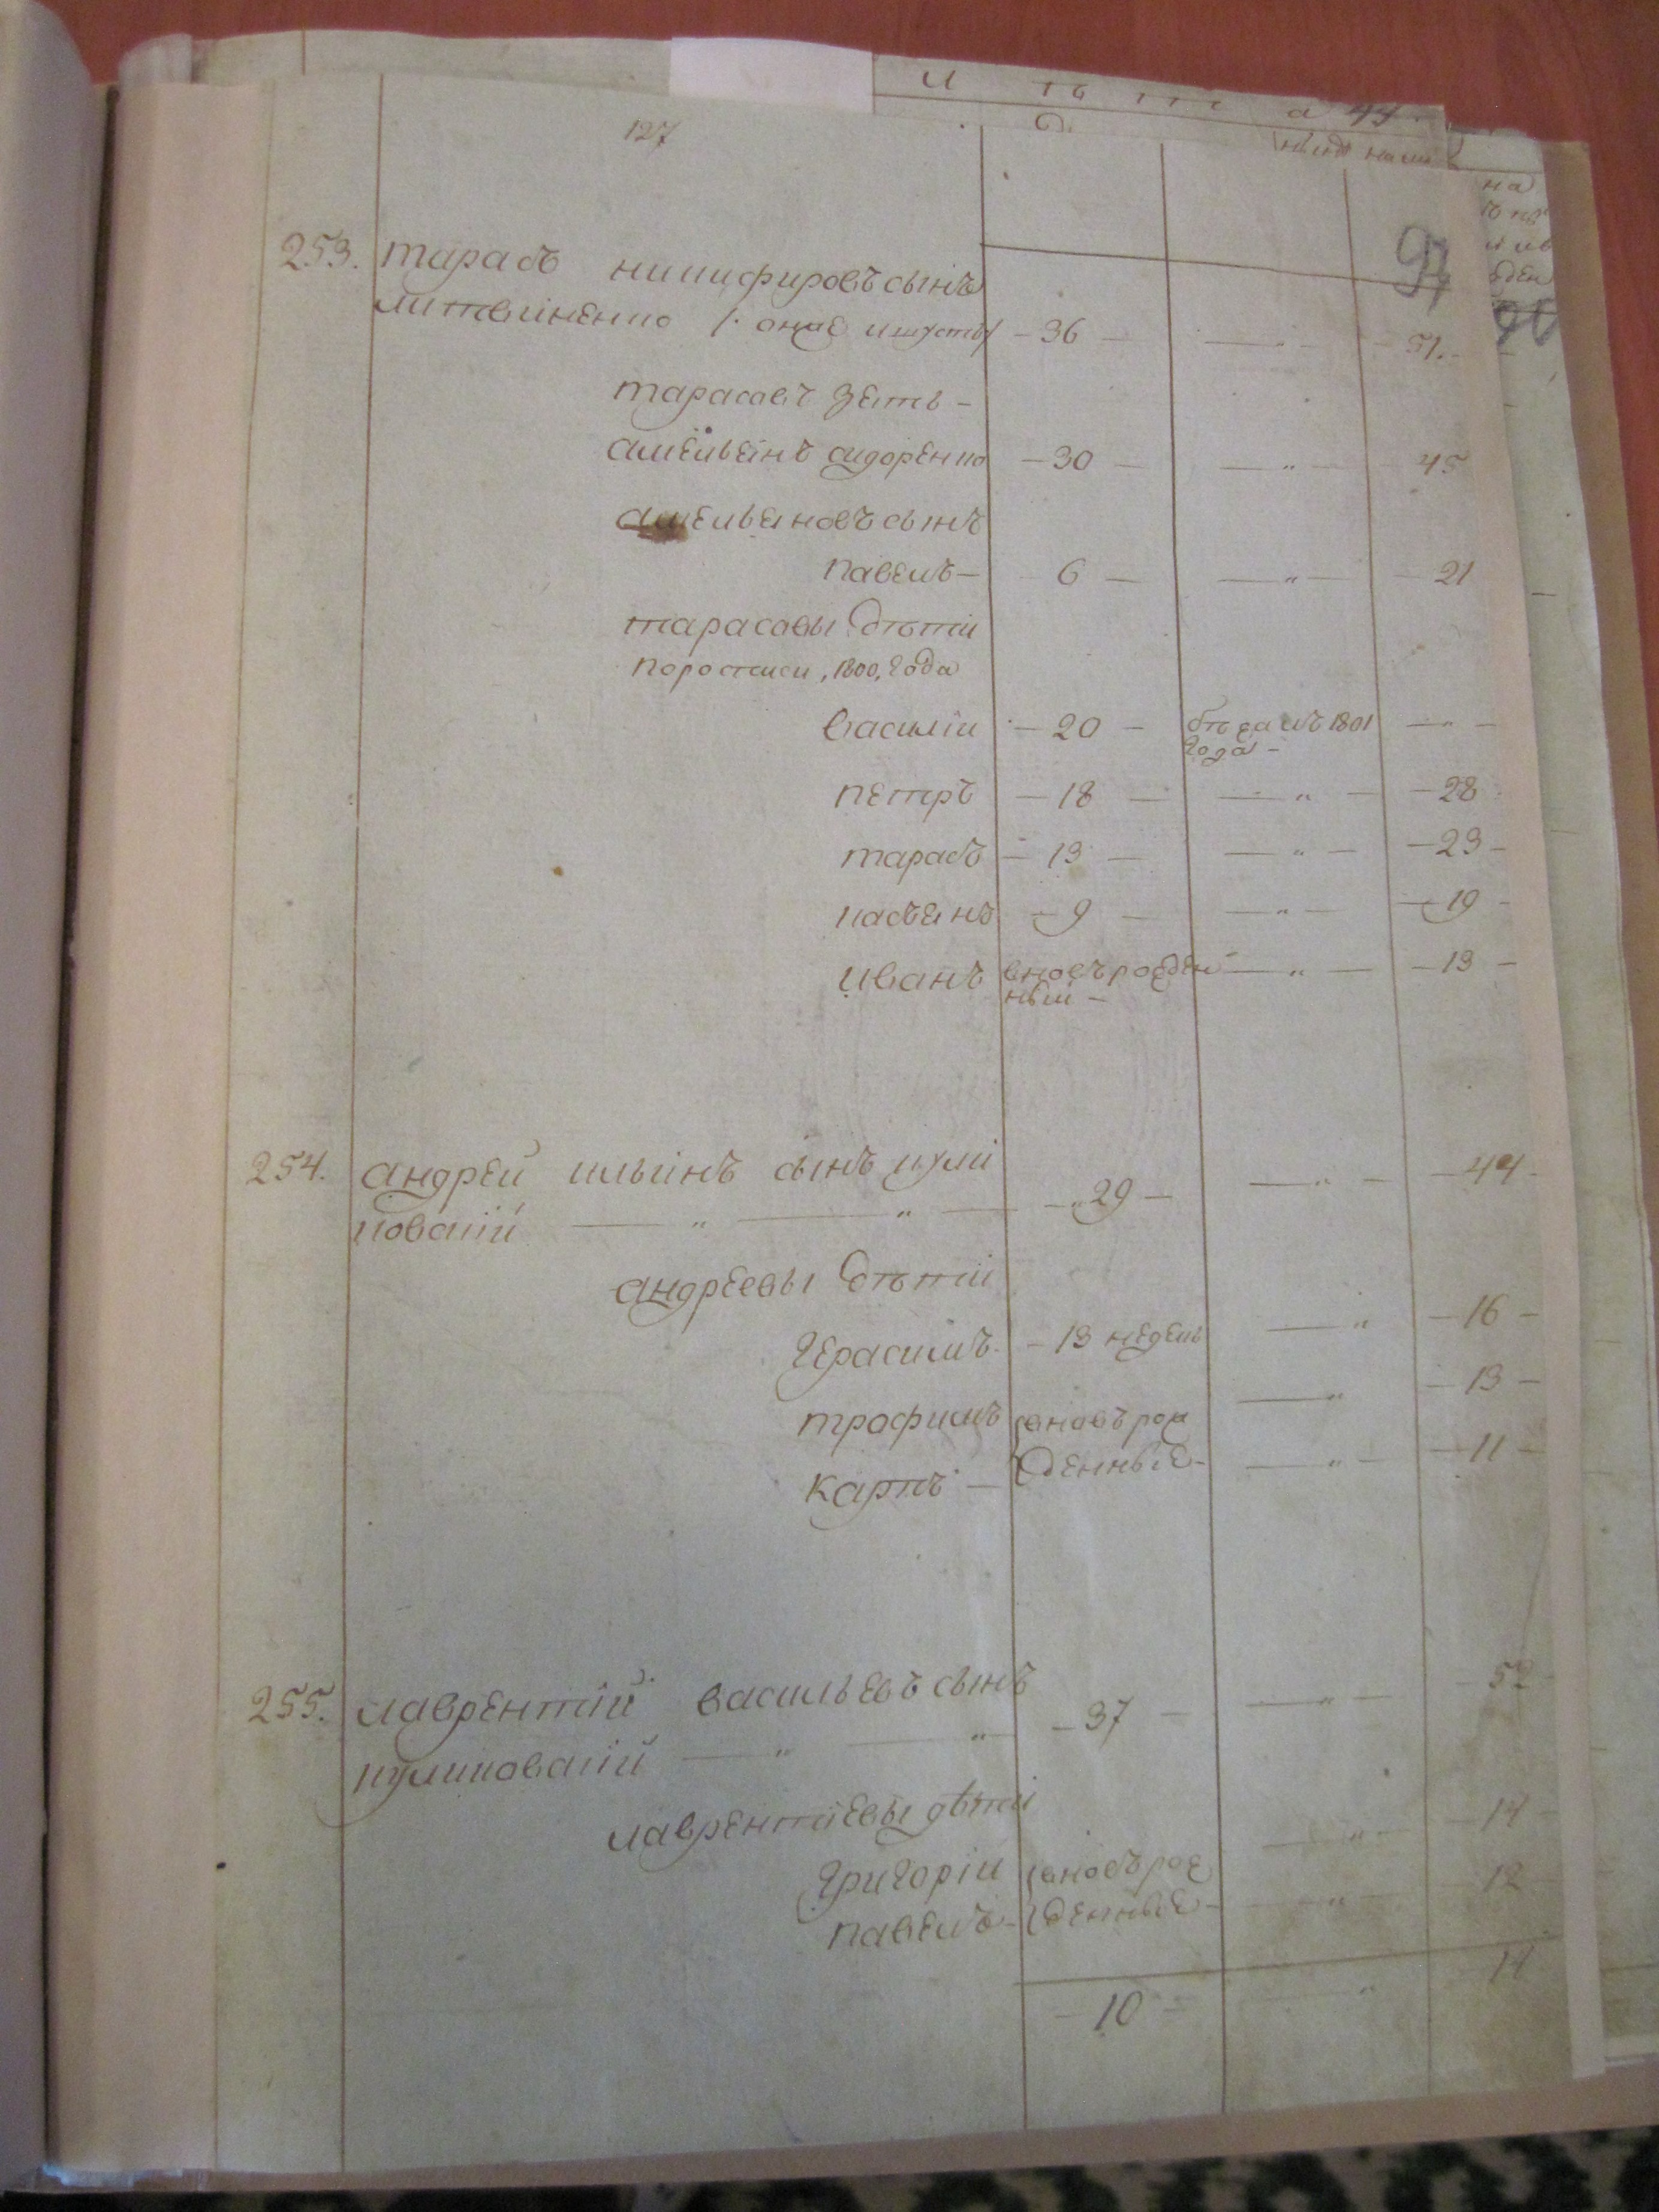 127
253. тарасъ никифировъ сынъ
литвиненко /: онже и шустъ/ — 36 — —„— 51.
тарасовъ зеть —
амельеянъ сидоренко — 30 — —„— 45
амельеяновъ сынъ
павелъ — — 6 — —„— — 21
тарасовы дѣти
поросписи, 1800, года
василіи — 20 — бежалъ 1801 —„—
года —
петръ — 18 — —„— — 28
тарасъ — 13 — —„— — 23 —
касьянъ — 9 — —„— — 19 —
иванъ вновърожден —„— — 13 —
ный —
254. андрей ильинъ сынъ кули —„— — 44 —
ковскій —„— —„— — 29 —
андреевы дѣти
герасимъ — 13 недель —„ — 16 —
трофимъ вновърож —„ — 13 —
карпъ — денные — —„— — 11 —
255. лаврентій васильевъ сынъ —„— 52
куликовскій —„— —„— — 37 —
лаврентіевы дѣти
григоріи вновърож —„— 14
павелъ — денные — —„— 12
— 10 — „ 14